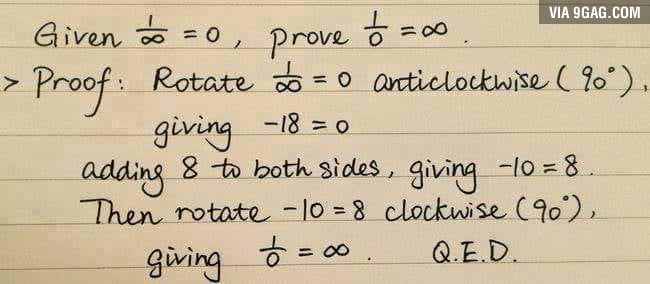 VIA 9GAG.COM
Given 1/∞ = 0, prove 1/0 = ∞.
> Proof: Rotate 1/∞ = 0 anticlockwise (90°),
giving -18 = 0
adding 8 to both sides, giving -10 = 8.
Then rotate -10 = 8 clockwise (90°),
giving 1/0 = ∞. Q.E.D.